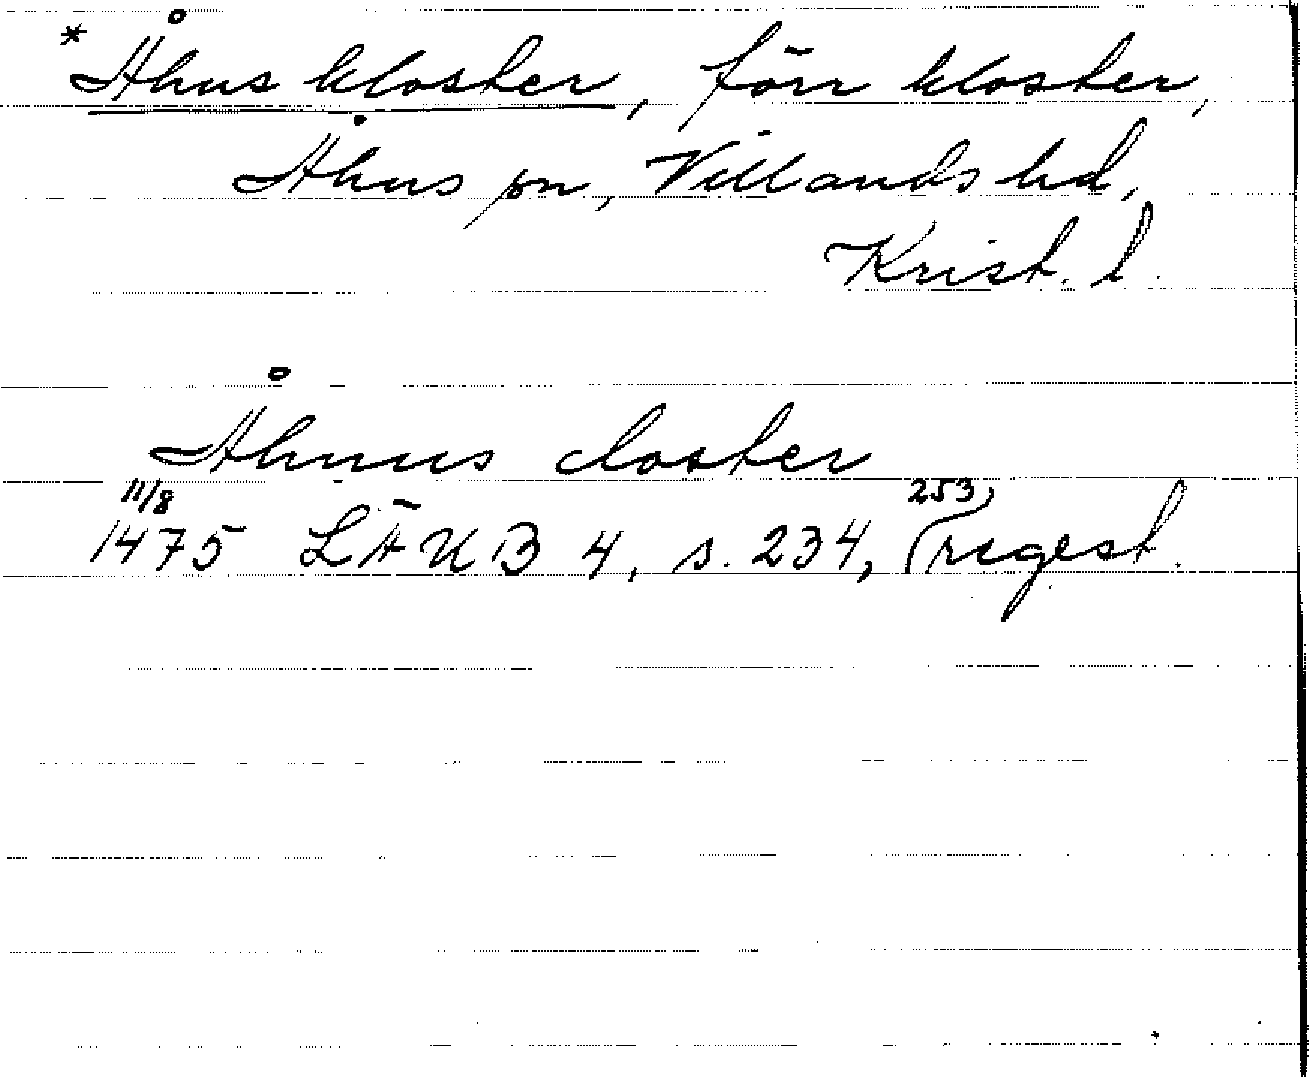 * Åhus kloster, förr kloster,
Åhus sn, Villands hd,
Krist. l.
Åhuus closter
11/8 1475 LÄUB 4, s. 234, 253, regest.